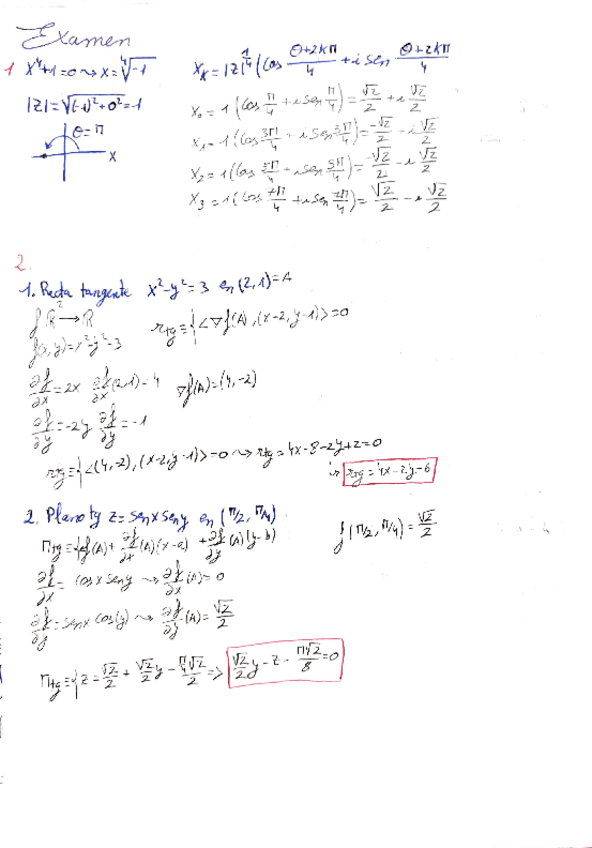 Examen
1 x⁴+1=0 ⇝ x=⁴√-1
|z|=√(-1)²+0²=1
θ=π
x
xₖ=|z|^¼(cos (θ+2kπ)/4 + i sen (θ+2kπ)/4
x₀=1(cos π/4 + i sen π/4)=√2/2+i√2/2
x₁=1(cos 3π/4 + i sen 3π/4)=-√2/2+i√2/2
x₂=1(cos 5π/4 + i sen 5π/4)=-√2/2-i√2/2
x₃=1(cos 7π/4 + i sen 7π/4)=√2/2-i√2/2
2.
1. Recta tangente x²-y²=3 en (2,1)=A
f R²→R
f(x,y)=x²-y²-3
r_tg≡{<∇f(A),(x-2,y-1)>=0
∂f/∂x=2x ∂f/∂x(2,1)=4 ∇f(A)=(4,-2)
∂f/∂y=-2y ∂f/∂y=-1
r_tg≡{<(4,-2),(x-2,y-1)>=0 ⇝ r_tg=4x-8-2y+2=0
r_tg=4x-2y=6
2. Plano tg z=senxseny en (π/2,π/4)
π_tg≡{f(A)+∂f/∂x(A)(x-a)+∂f/∂y(A)(y-b)
f(π/2,π/4)=√2/2
∂f/∂x=cosxseny ⇝ ∂f/∂x(A)=0
∂f/∂y=senxcos(y) ⇝ ∂f/∂y(A)=√2/2
π_tg≡{z=√2/2+√2/2y-π/4 √2/2 => √2/2y-z-π√2/8=0